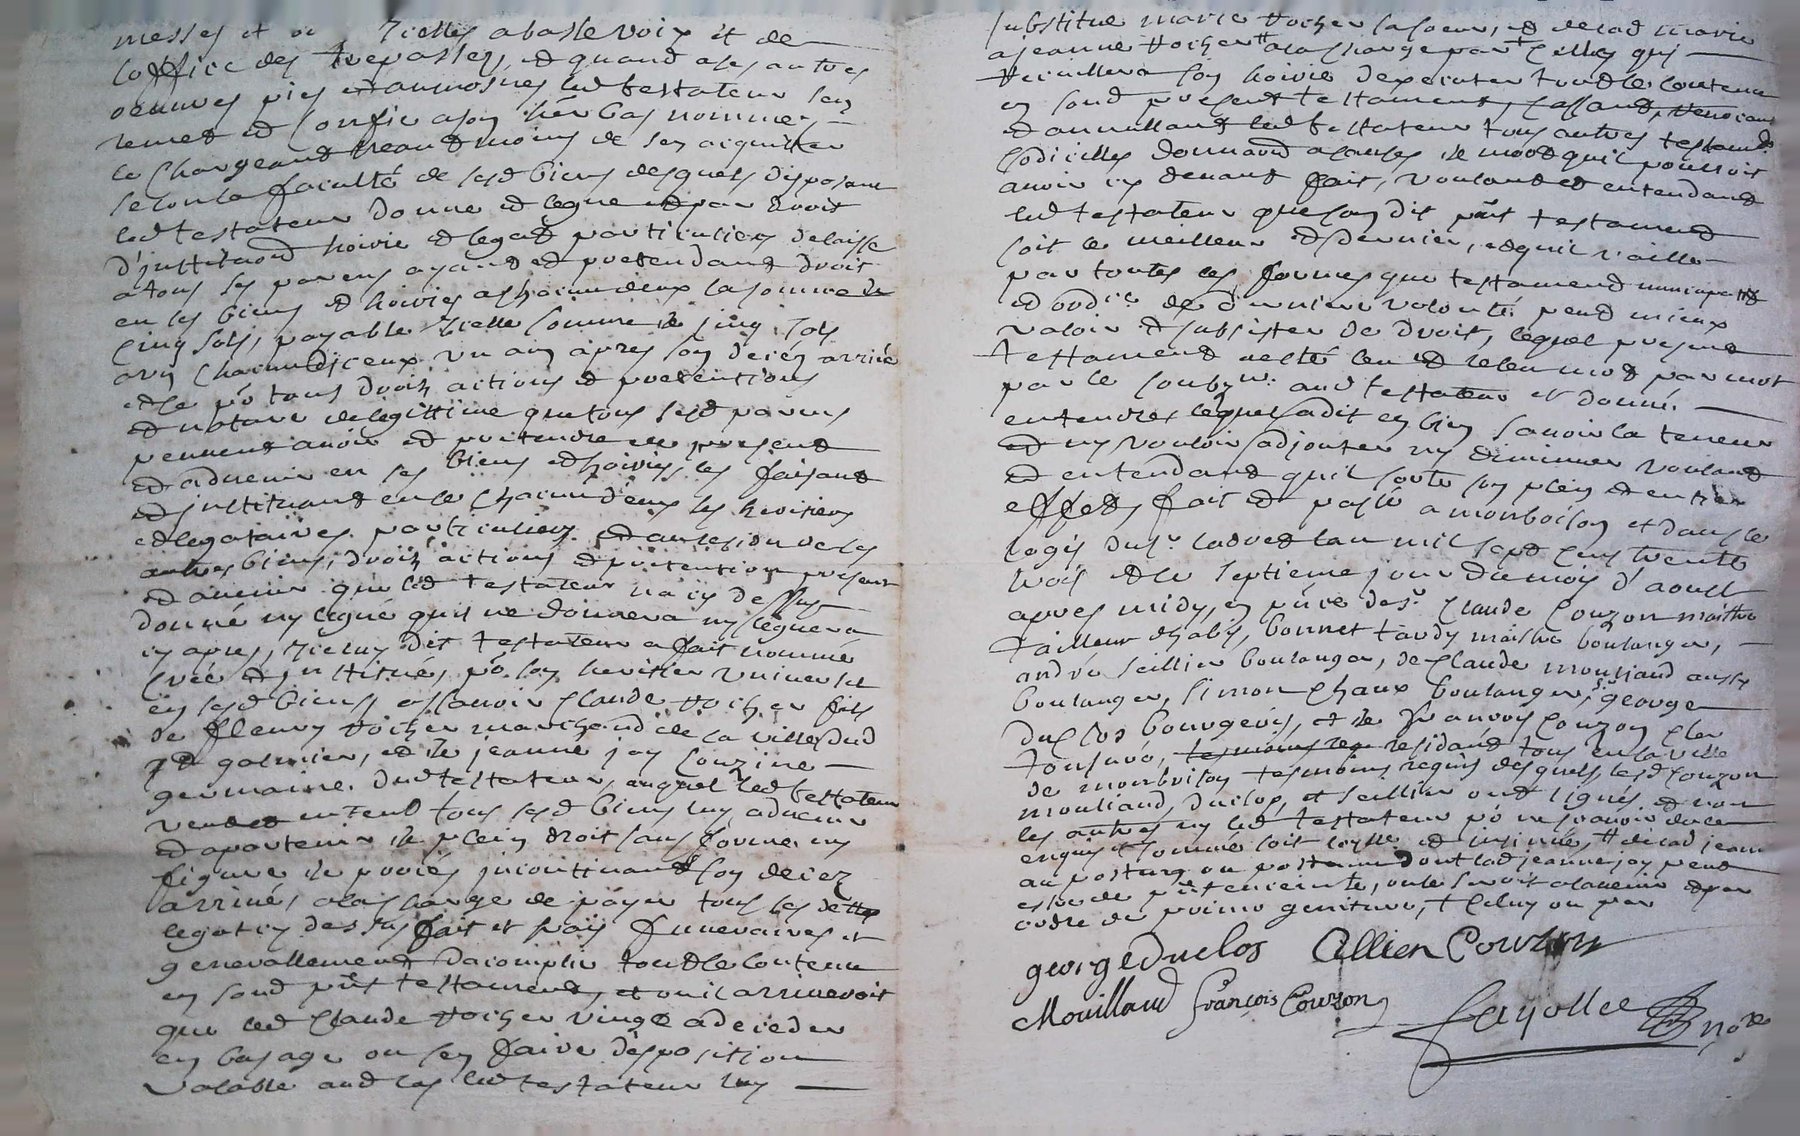 messes et icelles a basse voix et de
l'office des trepassez, et quand a ses autres
oeuvres pies et aumosnes led testateur s'en
remet et confie a son her bas nommé
le chargeand neandmoins de s'en acquitter
selon la faculté de sesd biens desquels disposant
led testateur donne et legue et par droit
d'institaond hoirie et legat particulier delaisse
a tous ses parens ayand et pretendand droit
en ses biens et hoiries a chacun deux la somme de
cinq sols, payable icelle somme de cinq sols
a un chacun diceux un an apres son decez arrivé
et ce po tous droits actions et pretentions
et nature de legittime que tous sesd parens
peuvent avoir et pretendre de present
et advenir en ses biens et hoiries, les faisand
et instituand en ce chacun d'eux ses heritiers
et legataires particuliers et au residu de ses
autres biens, droits actions et pretention present
et avenir que led testateur n'a cy dessus
donné ny legué qu'il ne donnera ny leguera
cy apres, iceluy dit testateur a fait nommé
créé et institué, po son heritier universel
en sesd biens assavoir Claude Vocher fils
de fleury Vocher marchand de la ville dud
st galmier, et de jeanne joy couzine
germaine dud testateur, auquel led testateur
veut et entend tous sesd biens luy advenir
et apartenir de plein droit sans forme ny
figure de procés incontinand son decez
arrivé, a la charge de payer tous ses dettes
legat cy dessus fait et frais funeraires et
generallement dacomplir tout le contenu
en sond pnt testament, et ou il arriveroit
que led Claude Vocher vingt a deceder
en bas age ou sen faire disposition
valable aud cas led testateur luy
substitue marie Vocher sa soeur, et delad marie
a jeanne Vocher a la charge par celles qui
recueillera son hoirie dexecuter tout le contenu
en sond present testament, cassand, revocand
et annulland led testateur tous autres testamds
codicilles donnaond a causes de mort quil pouroit
avoir cy devand fait, vouland et entendand
led testateur que son dit pnt testament
soit le meilleur et dernier, et quil vaille
par toutes les formes que testament
et de derniere volonté peud mieux
valoir et subsister de droit, lequel present
testament a esté leu et releu mot par mot
par le soubz ne aud testateur et donné
entendre lequel a dit en bien savoir la teneur
et ny vouloir adjouter ny diminuer vouland
et entendand quil sorte son plein et entier
effet, fait et passé a monbrison et dans le
logis du sr ladret lan mil sept cens trente
trois et le septieme jour du mois d'aoust
apres midy, en pnce de sr Claude Couzon maistre
tailleur dhabis, bonnet tardy maistre boulanger,
andré seillier boulanger, de Claude mouliaud aussy
boulanger, simon Chaux boulanger, sr george
duclos bourgeois, et de françois couzon clerc
tonsuré, residand tous en la ville
de monbrison tesmoins requis desquels lesd couzon
mouliaud, duclos, et seillier ond signés et non
les autres ny led testateur po ne sçavoir de ce
enquis et sommé soit controllé et insinué, # de lad jeanne
au posthume ou posthume dont lad jeanne joy peud
estre de pnt enceinte, ou le seroit a lavenir et par
ordre de primo geniture, + celuy ou par
george Duclos Cellier Couzon
Mouillaud françois Couzon
fayolle nore